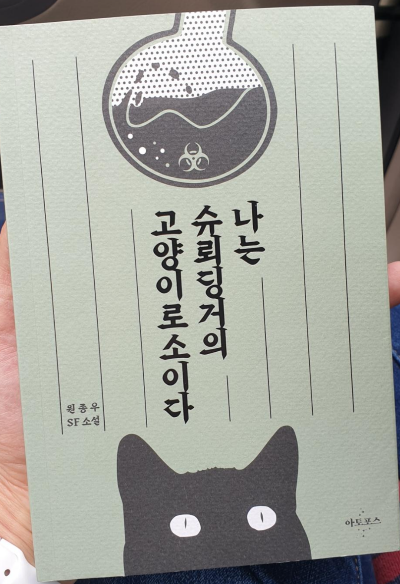 나는
슈뢰딩거의
고양이로소이다
원종우
SF 소설
아토포스